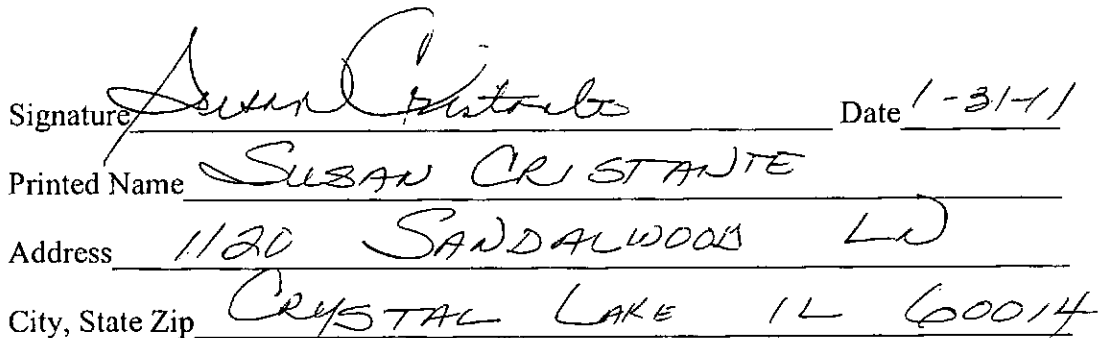 Signature Susan Cristante Date 1-31-11
Printed Name SUSAN CRISTANTE
Address 1120 SANDALWOOD LN
City, State Zip CRYSTAL LAKE IL 60014